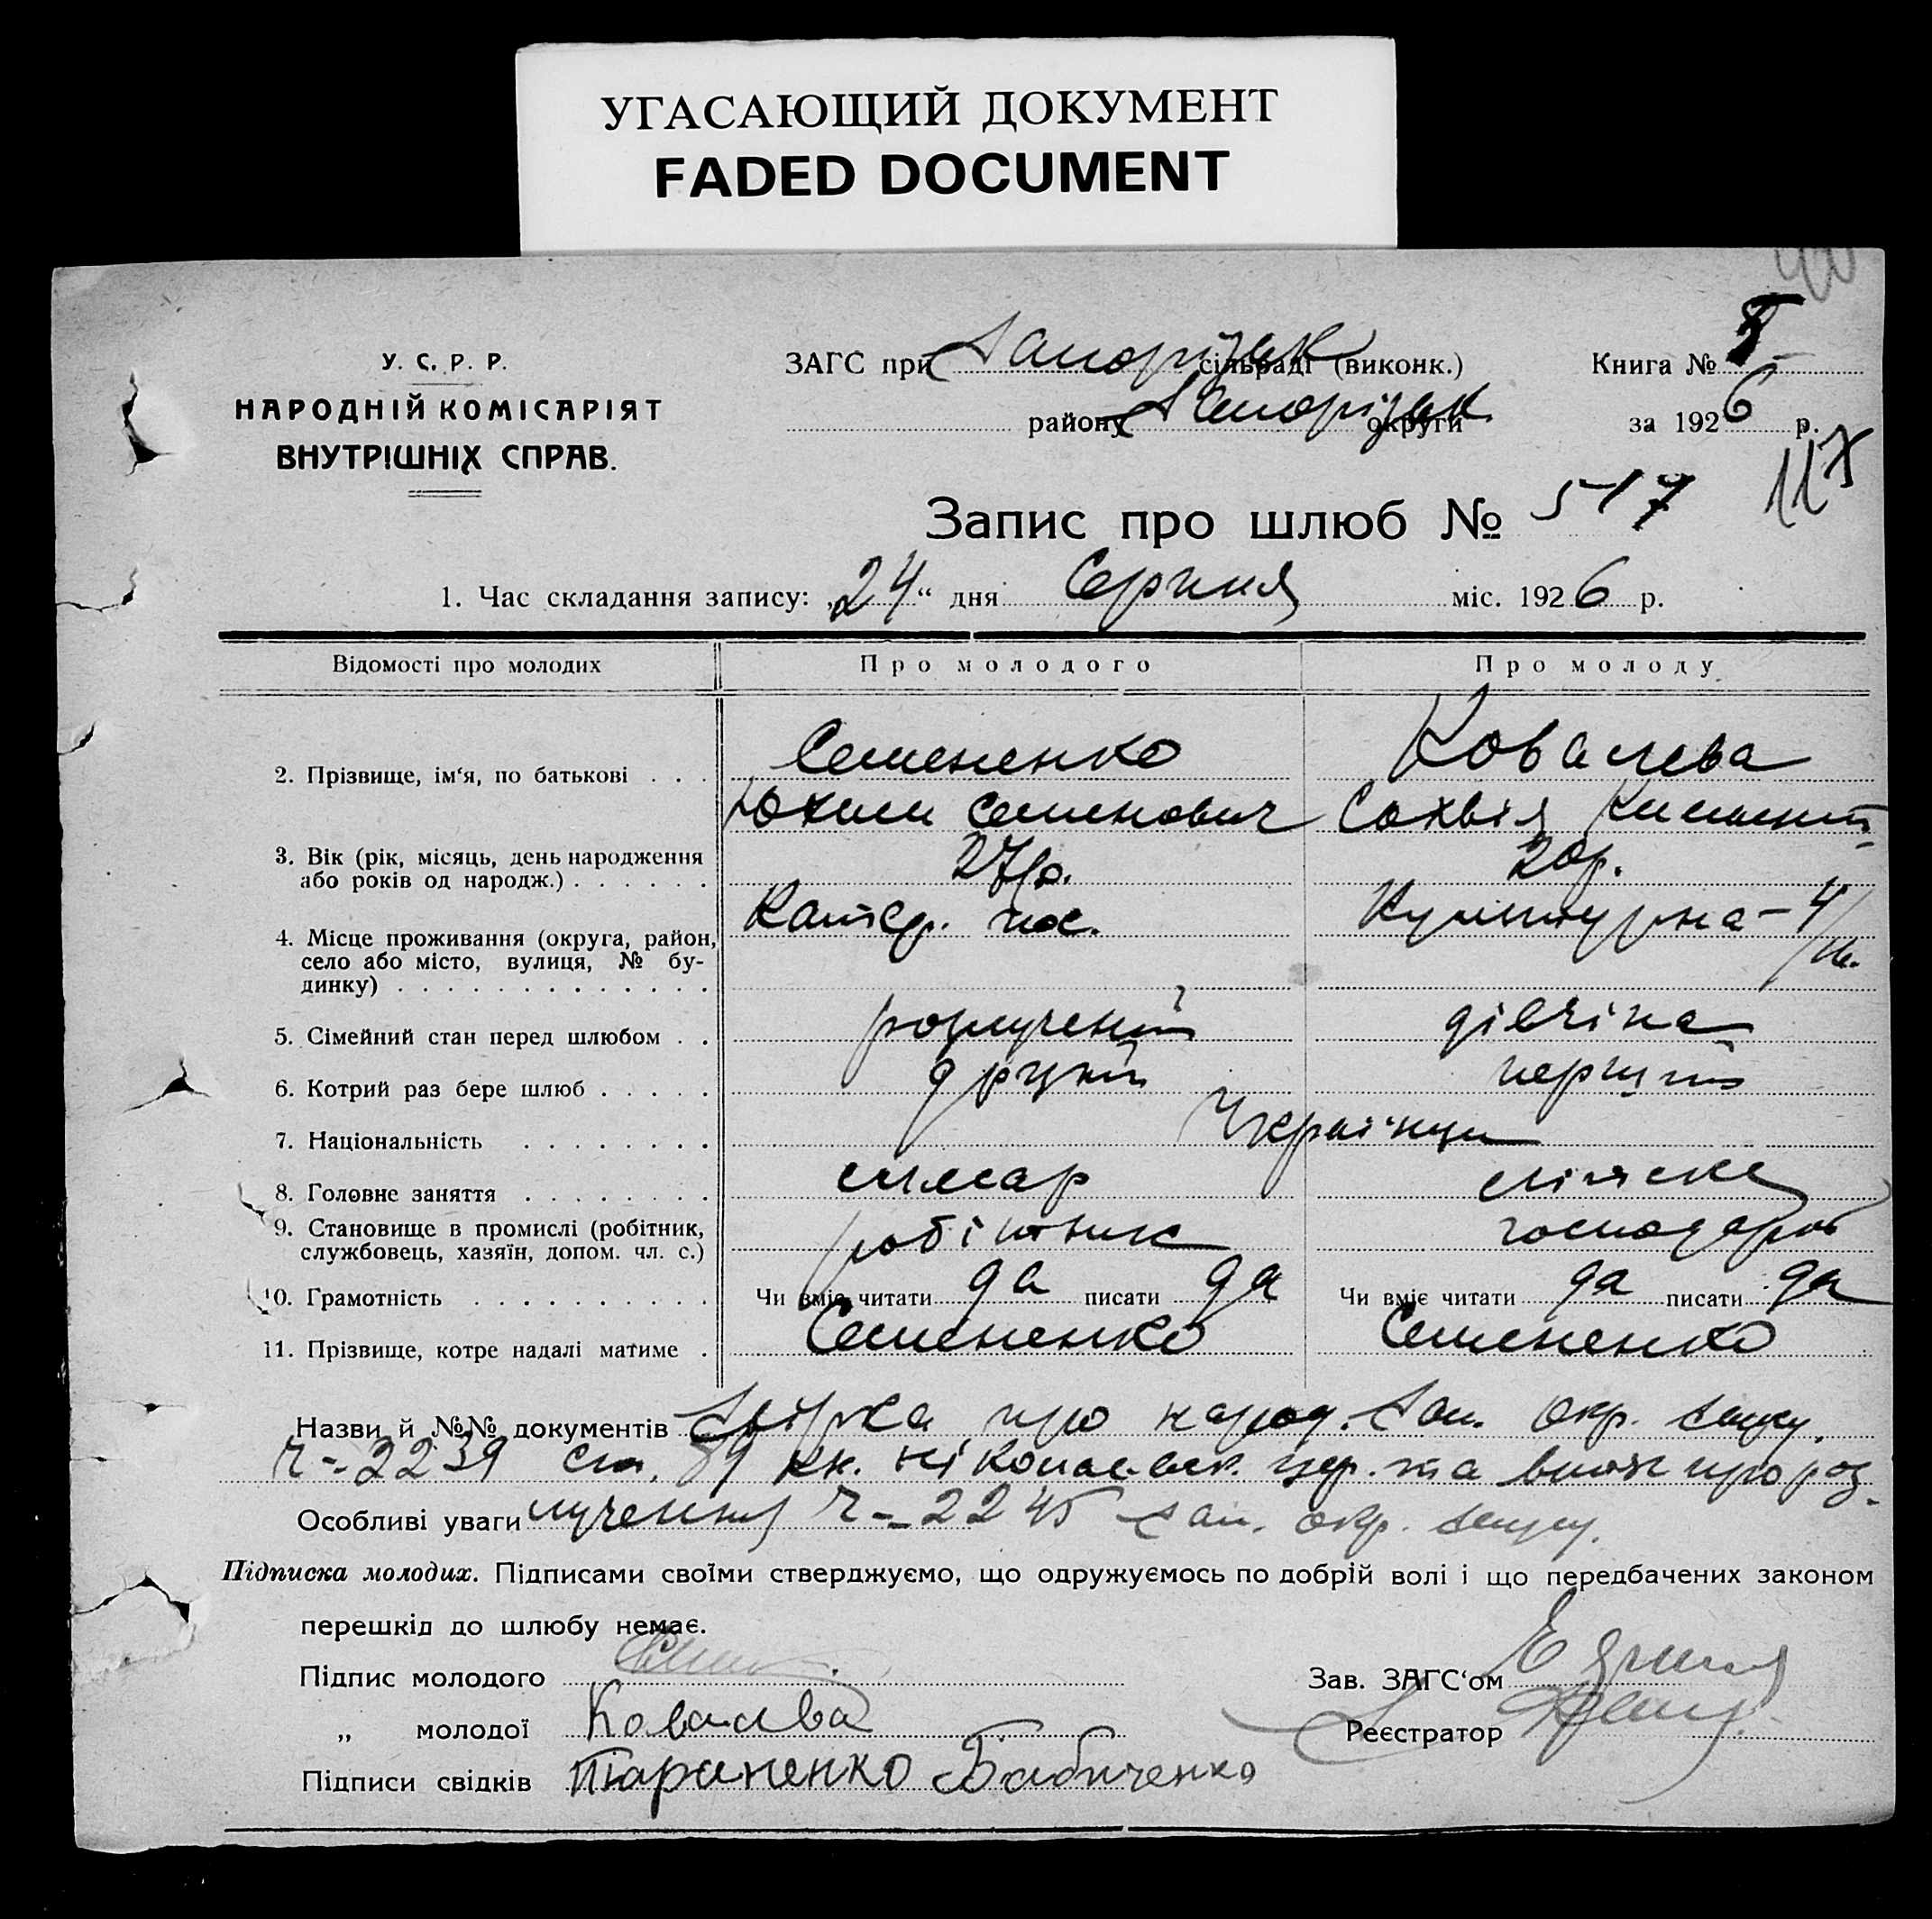 УГАСАЮЩИЙ ДОКУМЕНТ
FADED DOCUMENT
У. С. Р. Р.
НАРОДНІЙ КОМІСАРІЯТ
ВНУТРІШНІХ СПРАВ.
ЗАГС при Запорізьк сільраді (виконк.)
району Запорізьк округи
Книга №
за 1926 р.
117
Запис про шлюб № 517
1. Час складання запису: „24“ дня Серпня міс. 1926 р.
Відомості про молодих Про молодого Про молоду
2. Прізвище, ім‘я, по батькові . . . Семененко Ковалева
Юхим Семенович Сохвія
3. Вік (рік, місяць, день народження
або років од народж.) . . . . . . 27 р. 20 р.
4. Місце проживання (округа, район,
село або місто, вулиця, № бу-
динку) . . . . . . . . . . . . . Кантср. пос. Культурна - 4
5. Сімейний стан перед шлюбом . . розлучений дівчіна
6. Котрий раз бере шлюб . . . . . другий перший
7. Національність . . . . . . . . Українци
8. Головне заняття . . . . . . . . слюсар
9. Становище в промислі (робітник,
службовець, хазяїн, допом. чл. с.) робітник господаров
10. Грамотність . . . . . . . . . . Чи вміє читати да писати да Чи вміє читати да писати да
11. Прізвище, котре надалі матиме . Семененко Семененко
Назви й №№ документів про народ. Зап. окр.
ч-2239 ст. 89 кн. ніколаевск. цер. та витяг про роз-
Особливі уваги лучення ч-2245 Зап. окр.
Підписка молодих. Підписами своїми стверджуємо, що одружуємось по добрій волі і що передбачених законом
перешкід до шлюбу немає.
Підпис молодого
Зав. ЗАГС‘ом
„ молодої Ковалева
Реєстратор
Підписи свідків Тараненко Бабиченко